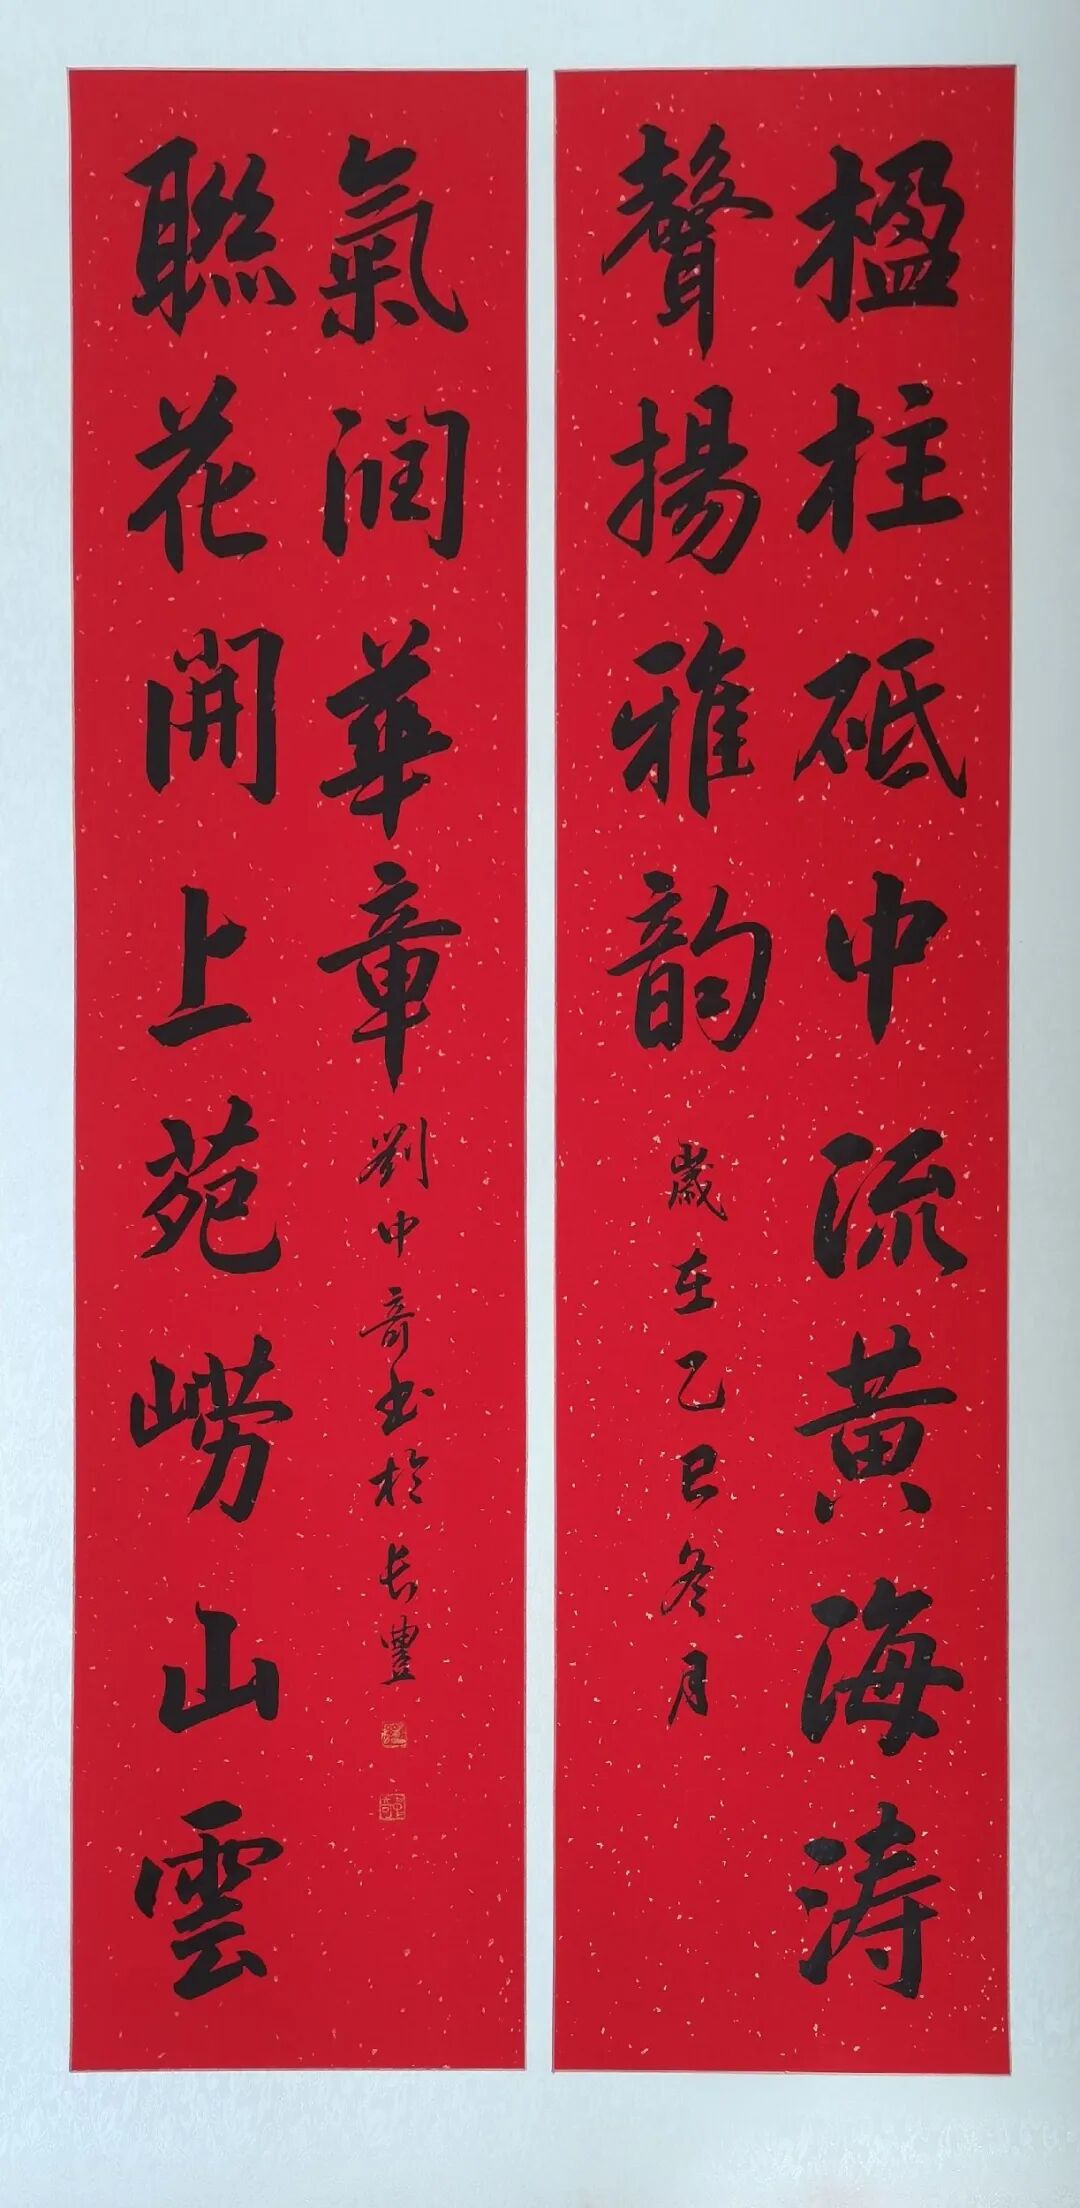 楹柱砥中流黄海涛
聲揚雅韵 歲在乙巳冬月
聯花開上苑崂山雲
氣润華章 劉中奇书於长豐